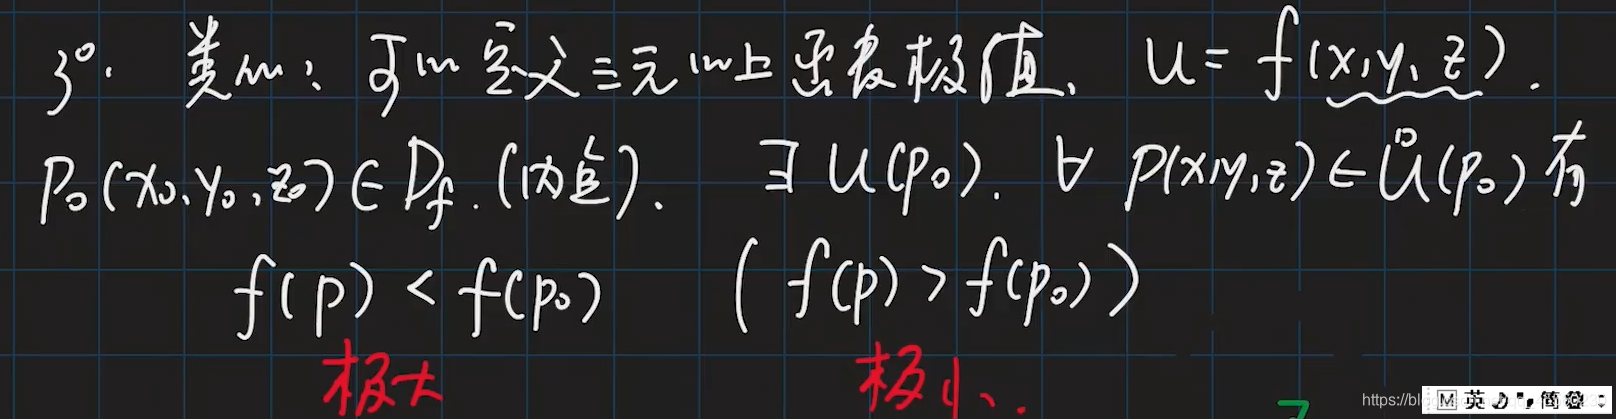 3°. 类似：可以定义三元以上函数极值. U = f(x,y,z).
P₀(x₀,y₀,z₀)∈D_f.(内点). ∃ U(P₀). ∀ P(x,y,z)∈Ů(P₀) 有
f(P) < f(P₀) ( f(P) > f(P₀) )
极大 极小.
https://blo
M 英 簡